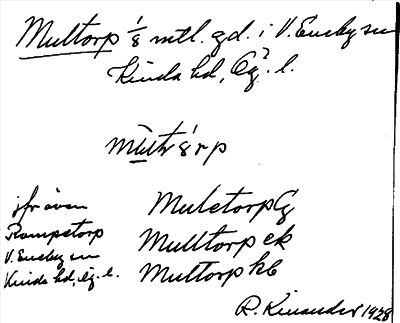 Multorp 1/8 mtl. gd. i V. Eneby sn
Kinda hd, Ög. l.
jfr även
Rampetorp
V. Eneby sn
Kinda hd, Ög. l.
Muletorp Cg
Mulltorp ek
Multorp hb
R. Kinander 1928